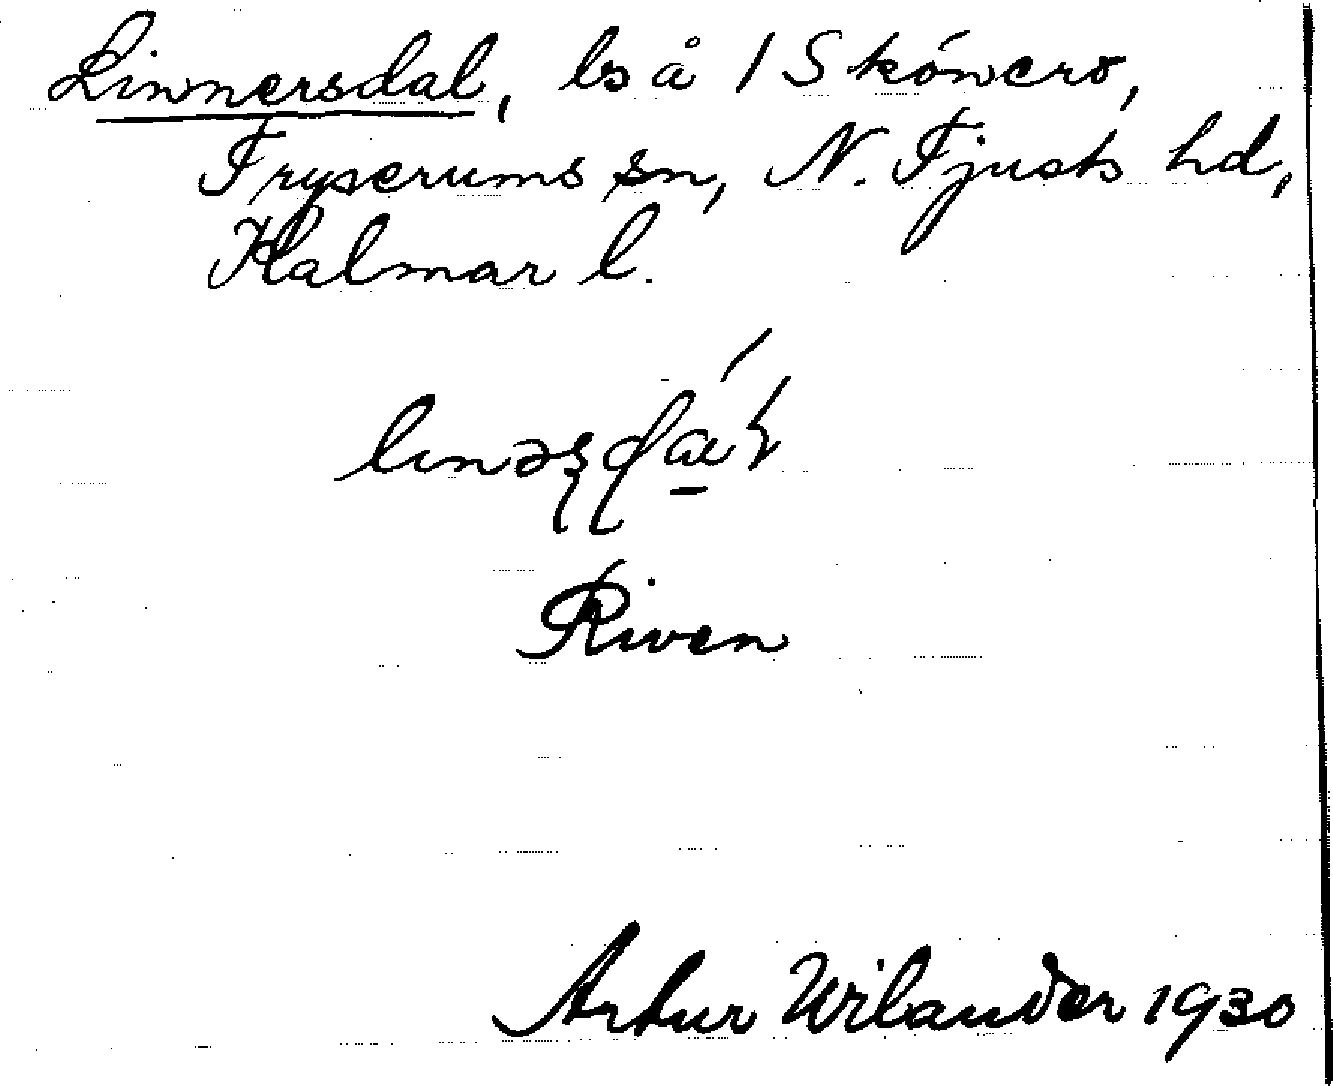 Linnersdal, ls å 1 Skönero,
Tryserums sn, N. Tjusts hd,
Kalmar l.
Riven
Artur Wilander 1930